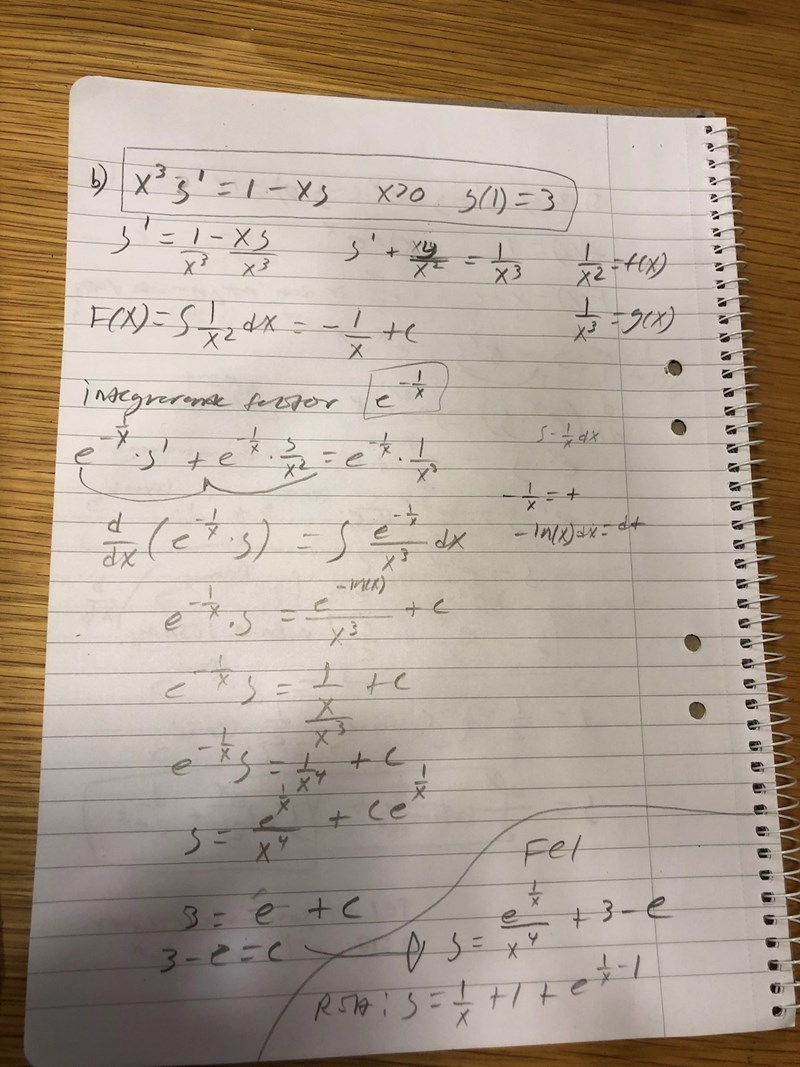 b) x³ y' = 1 - xy   x>0   y(1) = 3
y' = 1/x³ - xy/x³   y' + y/x² = 1/x³   1/x² = f(x)
F(x) = ∫ 1/x² dx = -1/x + c   1/x³ = g(x)
integrerande faktor e^(-1/x)
e^(-1/x) · y' + e^(-1/x) · y/x² = e^(-1/x) · 1/x³   ∫ -1/x dx
-1/x = t
d/dx (e^(-1/x) · y) = ∫ e^(-1/x)/x³ dx   -ln(x) dx = dt
e^(-1/x) · y = e^(-ln(x))/x³ + c
e^(-1/x) y = (1/x)/x³ + c
e^(-1/x) y = 1/x⁴ + c
y = e^(1/x)/x⁴ + Ce^(1/x)
Fel
3 = e + c
3 - e = c → y = e^(1/x)/x⁴ + 3 - e
y = 1/x + 1 + e^(1/x - 1)